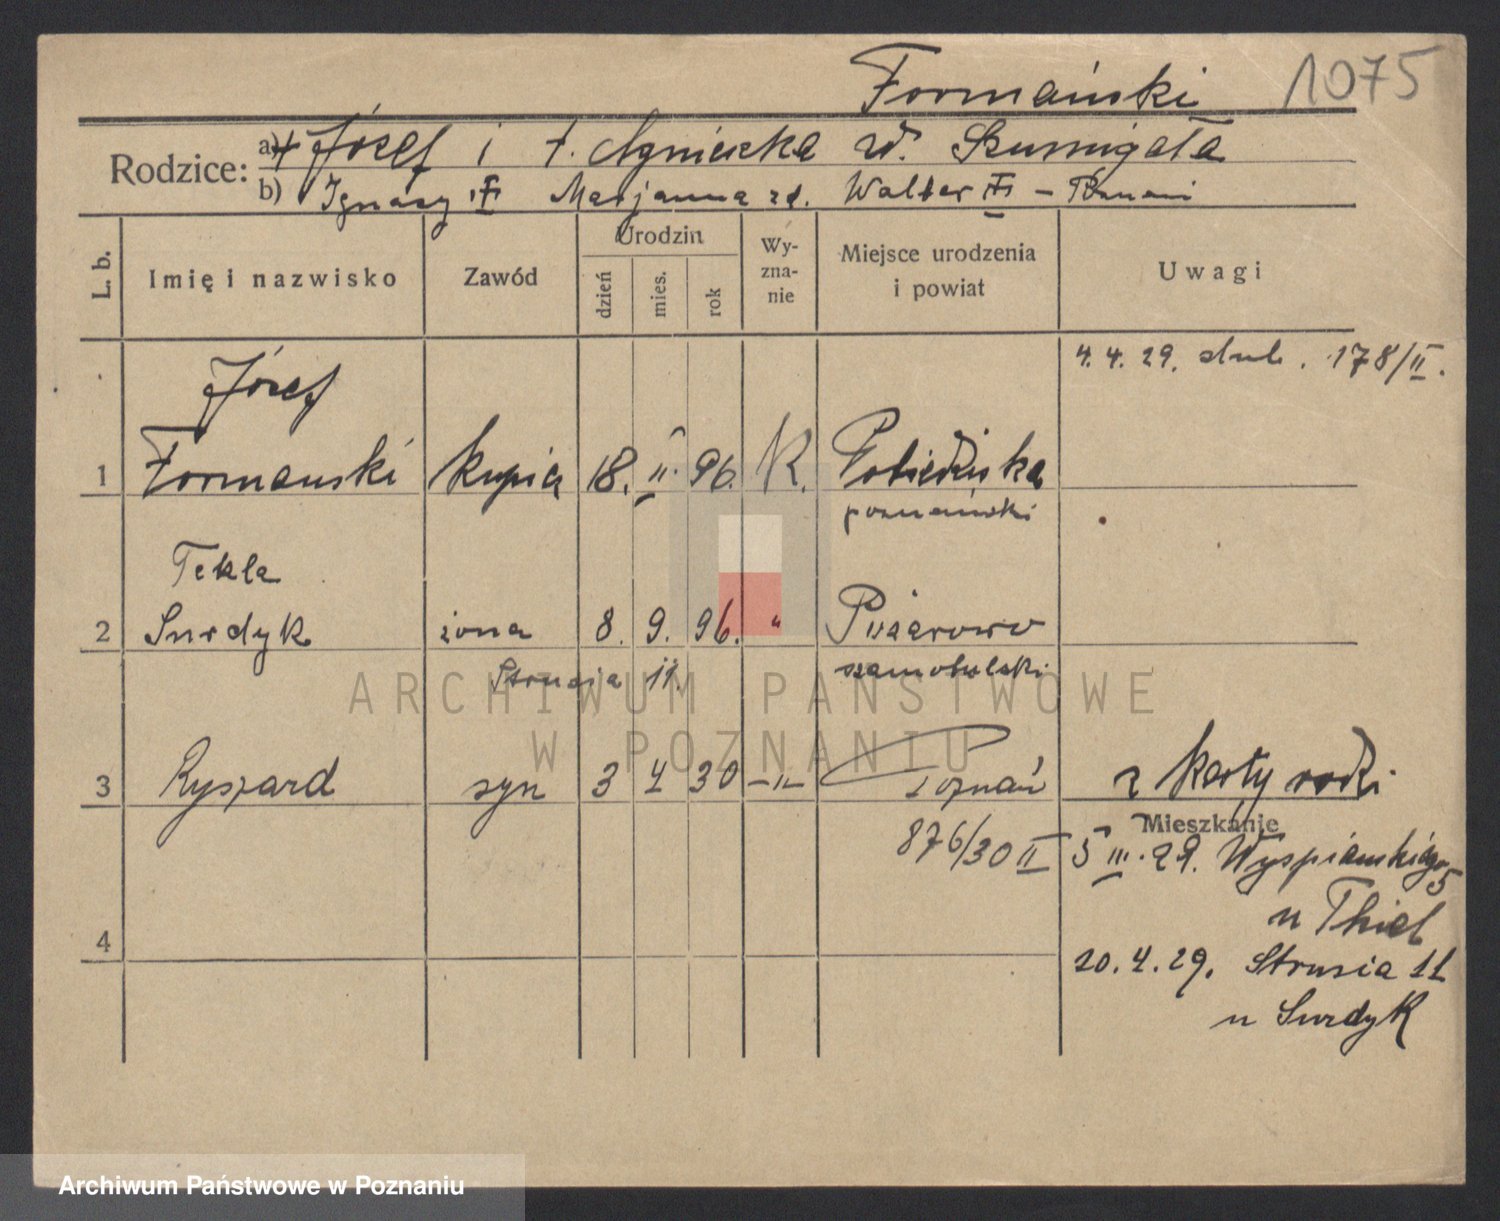 Formański 1075
Rodzice: a) † Józef i †. Agnieszka zd. Szumigała
b) Ignacy Marjanna zd. Walter
L. b.
Imię i nazwisko
Zawód
Urodzin
dzień
mies.
rok
Wy-
zna-
nie
Miejsce urodzenia
i powiat
Uwagi
4. 4. 29. slub. 178/II.
Józef
1 Formanski kupiec 18. II. 96. K. Pobiedziska
poznański
Tekla
2 Surdyk żona 8. 9. 96. "
szamotulski
Strusia 11.
3 Ryszard syn 3 4 30 -"- Poznań z karty rodzi
876/30 II
Mieszkanie
5 III. 29. Wyspiańskiego 5
u Thiel
4
20. 4. 29. Strusia 11
u Surdyk
ARCHIWUM PAŃSTWOWE
W POZNANIU
Archiwum Państwowe w Poznaniu